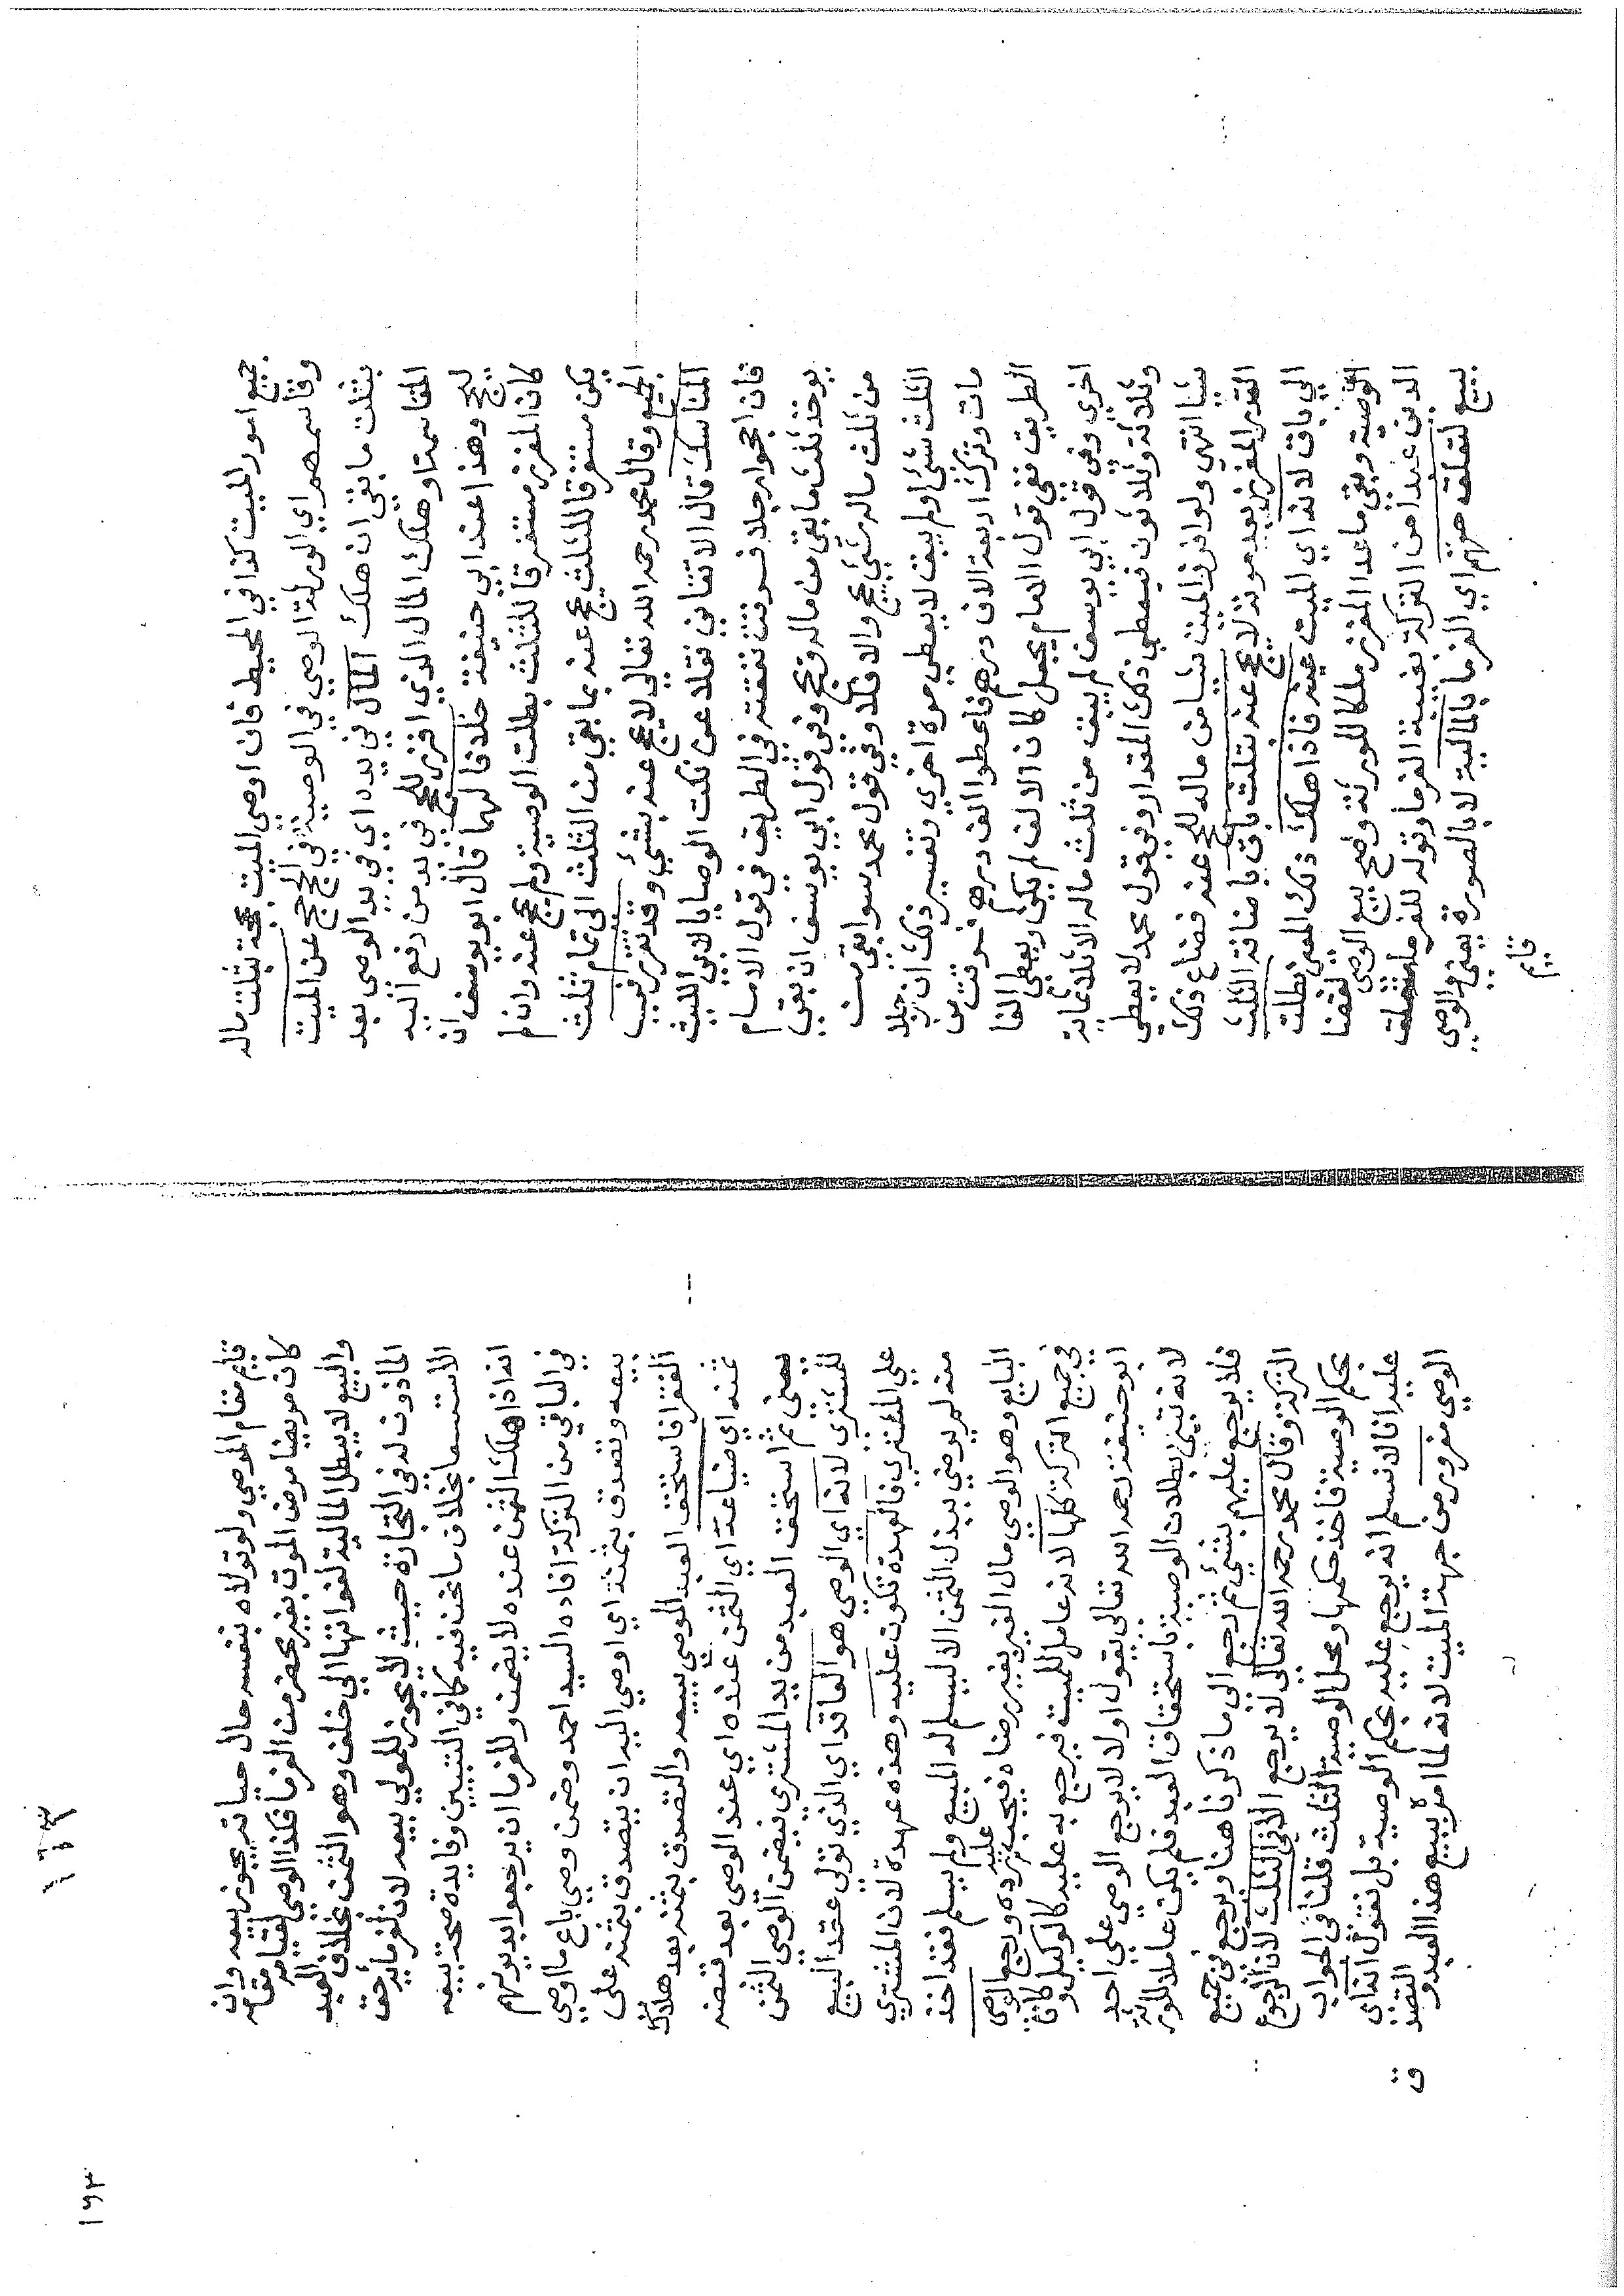 جميع امور الميت كذا في المحيط فان اوصي الميت بحجة بثلث ماله
وقاسمهم اي الورثة الوصي في الوصية في الحج عن الميت
بثلث ما بقي ان هلك المال في يده اي في يد الوصي بعد
المقاسمة او هلك المال الذي افرز للحج في يد من دفع اليه
ليحج وهذا عند ابي حنيفة خلافا لهما قال ابو يوسف ان
كان المفرز مستغرقا للثلث بطلت الوصية ولم يحج عنه وان لم
يكن مستغرقا للثلث يحج عنه بما بقي من الثلث الى تمام ثلث
الجميع وقال محمد رحمه الله تعالي لا يحج عنه بشئ وقد تقرر في
المناسك قال الاتقاني نقلا عن نكت الوصايا لابي الليث
فان احجوا رجلا فسرقت نفقته في الطريق في قول الامام
يوخذ ثلث ما بقي من ماله فيحج وفي قول ابي يوسف ان بقي
من ثلث ماله شئ يحج والا فلا وفي قول محمد سوا بقي من
الثلث شئ اولم يبق لا يعطي مرة اخري وتفسير ذلك ان رجلا
مات وترك اربعة الاف درهم فاعطوا الف درهم فسرقت من
الطريق ففي قول الامام يجعل كان الالف لم يكن ويعطي الفا
اخري وفي قول ابي يوسف لم يبق من ثلث ماله الا ثلاثمائة
وثلاثة وثلاثون فيعطي ذلك المقدار وفي قول محمد لا يعطي
شيئا انتهي ولو افرز الميت شيا من ماله للحج عنه فضاع ذلك
القدر المفرز بعد موته لا يحج عنه بثلث باق باضافة الثلث
الي باق لانه اي الميت عينه فاذا هلك ذلك المعين بطلت
الوصية وبقي ما عدا المفرز ملكا للورثة وصح بيع الوصي لقضا
الدين عبدا من التركة بغيبة الغرما وقوله للغرما متعلق
ببيع لتعلق حقهم اي الغرما بالمالية لا بالصورة يعني والوصي
قايم
قايم مقام الموصي ولو تولاه بنفسه حال حياته يجوز بيعه وان
كان مريضا مرض الموت بغير محضر من الغرما فكذا الوصي لقيامه مقامه
والبيع لا يبطل المالية لفواتها الي خلف وهو الثمن بخلاف العبد
الماذون له في التجارة حيث لا يجوز للمولي بيعه لان لغرمايه حق
الاستسعا بخلاف ما نحن فيه كما في التبيين وفايدة صحة بيعه
انه اذا هلك الثمن عنده لا يضمن وللغرما ان يرجعوا بديونهم
في الباقي من التركة افاده السيد احمد وضمن وصي باع ما اوصي
ببيعه وتصدق بثمنه اي اوصي اليه ان يتصدق بثمنه على
الفقرا فاستحق العبد الموصي ببيعه والتصدق بثمنه بعد هلاك
ثمنه اي ضياعه اي الثمن عنده اي عند الوصي بعد قبضه
يعني ثم استحق العبد من يد المشتري فيضمن الوصي الثمن
للمشتري لانه اي الوصي هو العاقد اي الذي تولى عقد البيع
على المشتري فالعهدة تكون عليه وهذه عهدة لان المشتري
منه لم يرضي ببذل الثمن الا ليسلم له المبيع ولم يسلم فقد اخذ
البايع وهو الوصي مال الغير بغير رضاه فيجب عليه رده ورجع الوصي
في جميع التركة كلها لانه عامل للميت فيرجع به عليه كالوكيل وكان
ابو حنيفة رحمه الله تعالى يقول اولا لا يرجع الوصي على احد
لانه تبين بطلان الوصية باستحقاق العبد فلم يكن عاملا للورثة
فلا يرجع عليهم بشئ ثم رجع الى ما ذكرنا هنا ويرجع في جميع
التركة وقال محمد رحمه الله تعالى لا يرجع الا في الثلث لان الرجوع
بحكم الوصية فاخذ حكمها ومحل الوصية الثلث قلنا في الجواب
عليه انا لا نسلم انه يرجع عليه بحكم الوصية بل نقول انه اي
الوصي مغرور من جهة الميت لانه لما امره ببيع هذا العبد و التصد
ق
١٦٣
١٦٣